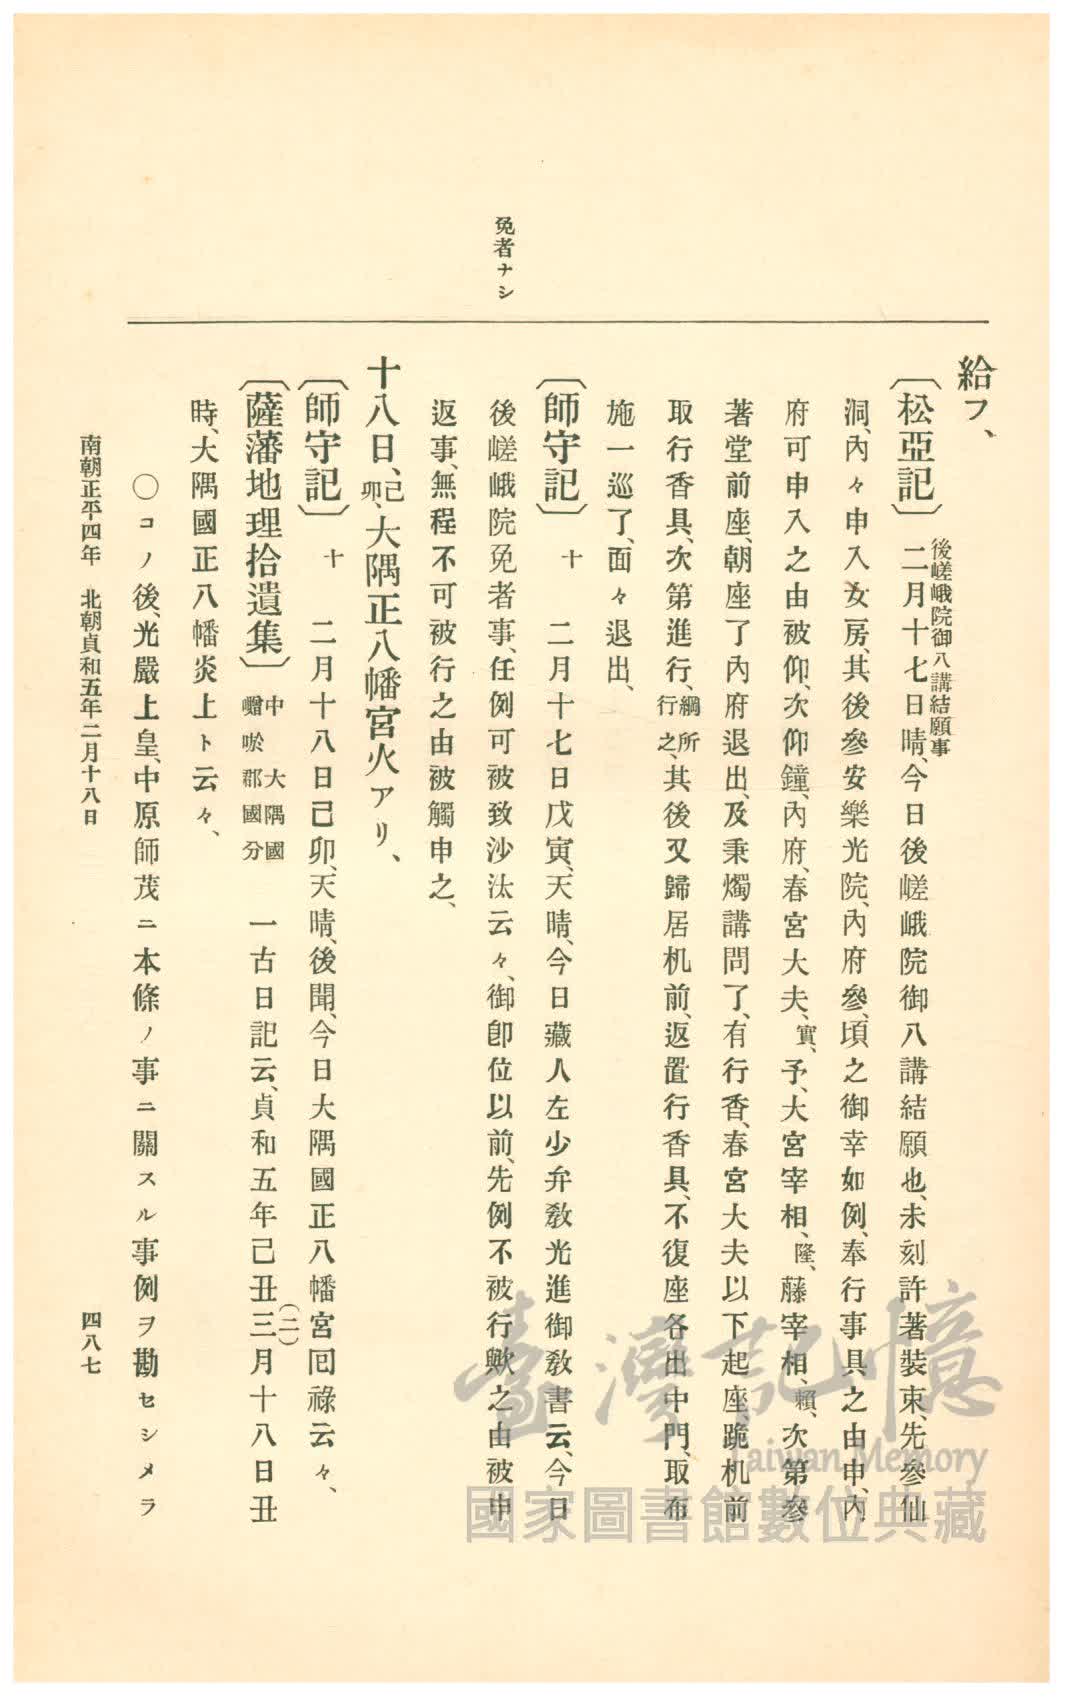 免者ナシ
給フ、
〔松亞記〕後嵯峨院御八講結願事
二月十七日晴、今日後嵯峨院御八講結願也、未刻許著裝束、先參仙
洞、內々申入女房、其後參安樂光院、內府參、頃之御幸如例、奉行事具之由申、內
府可申入之由被仰、次仰鐘、內府、春宮大夫、實、予、大宮宰相、隆、藤宰相、賴、次第參
著堂前座、朝座了內府退出、及秉燭講問了、有行香、春宮大夫以下起座、跪机前
取行香具、次第進行、綱所行之、其後又歸居机前、返置行香具、不復座各出中門、取布
施一巡了、面々退出、
〔師守記〕十 二月十七日戊寅、天晴、今日藏人左少弁敎光進御敎書云、今日
後嵯峨院免者事、任例可被致沙汰云々、御卽位以前、先例不被行歟之由被申
返事、無程不可被行之由被觸申之、
十八日、己卯、大隅正八幡宮火アリ、
〔師守記〕十 二月十八日己卯、天晴、後聞、今日大隅國正八幡宮囘祿云々、
〔薩藩地理拾遺集〕中 大隅國囎唹郡國分 一古日記云、貞和五年己丑三(二)月十八日丑
時、大隅國正八幡炎上ト云々、
○コノ後、光嚴上皇、中原師茂ニ本條ノ事ニ關スル事例ヲ勘セシメラ
南朝正平四年 北朝貞和五年二月十八日
四八七
臺灣記憶
Taiwan Memory
國家圖書館數位典藏